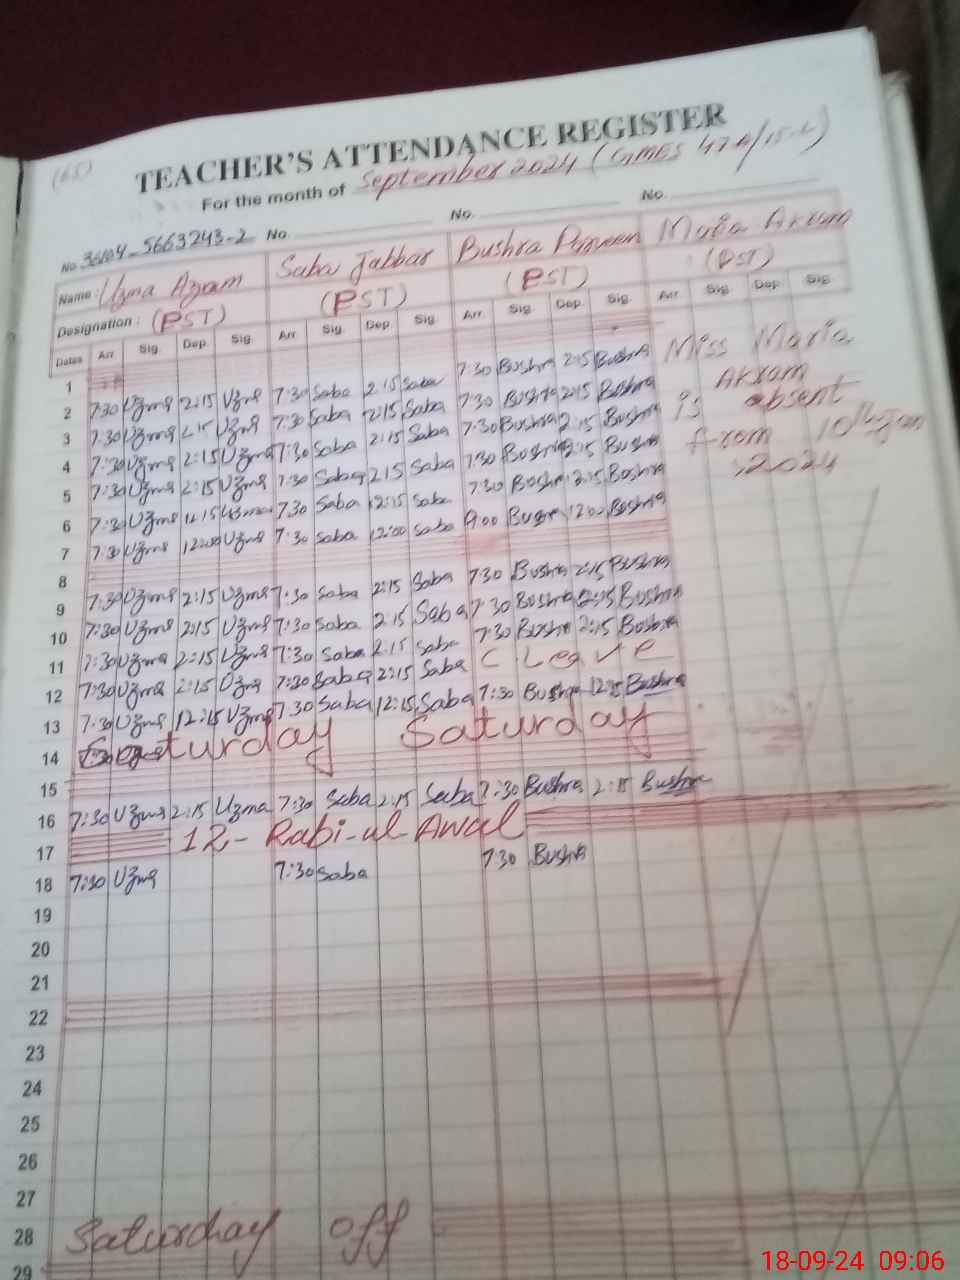 (65)
TEACHER'S ATTENDANCE REGISTER
For the month of September 2024 (GMES 47A/15-L)
No. 36104-5663243-2 No. No. No.
Name: Uzma Azram Saba Jabbar Bushra Parveen Maria Akram
Designation: (PST) (PST) (PST) (PST)
Dates Arr Sig. Dep. Sig. Arr Sig. Dep. Sig. Arr Sig. Dep Sig. Arr Sig. Dep Sig.
1
2 7:30 Uzma 2:15 Uzma 7:30 Saba 2:15 Saba 7:30 Bushra 2:15 Bushra Miss Maria
3 7:30 Uzma 2:15 Uzma 7:30 Saba 2:15 Saba 7:30 Bushra 2:15 Bushra Akram
4 7:30 Uzma 2:15 Uzma 7:30 Saba 2:15 Saba 7:30 Bushra 2:15 Bushra is absent
5 7:30 Uzma 2:15 Uzma 7:30 Saba 2:15 Saba 7:30 Bushra 2:15 Bushra from 10th Jan
6 7:30 Uzma 12:15 Uzma 7:30 Saba 12:15 Saba 7:30 Bushra 2:15 Bushra 2024
7 7:30 Uzma 12:00 Uzma 7:30 Saba 12:00 Saba 9:00 Bushra 12:00 Bushra
8
9 7:30 Uzma 2:15 Uzma 7:30 Saba 2:15 Saba 7:30 Bushra 2:15 Bushra
10 7:30 Uzma 2:15 Uzma 7:30 Saba 2:15 Saba 7:30 Bushra 2:15 Bushra
11 7:30 Uzma 2:15 Uzma 7:30 Saba 2:15 Saba 7:30 Bushra 2:15 Bushra
12 7:30 Uzma 2:15 Uzma 7:30 Saba 2:15 Saba C Leave
13 7:30 Uzma 12:15 Uzma 7:30 Saba 12:15 Saba 7:30 Bushra 12:15 Bushra
14 Saturday Saturday
15
16 7:30 Uzma 2:15 Uzma 7:30 Saba 2:15 Saba 7:30 Bushra 2:15 Bushra
17 12-Rabi-ul-Awal
18 7:30 Uzma 7:30 Saba 7:30 Bushra
19
20
21
22
23
24
25
26
27
28 Saturday off
29
18-09-24 09:06